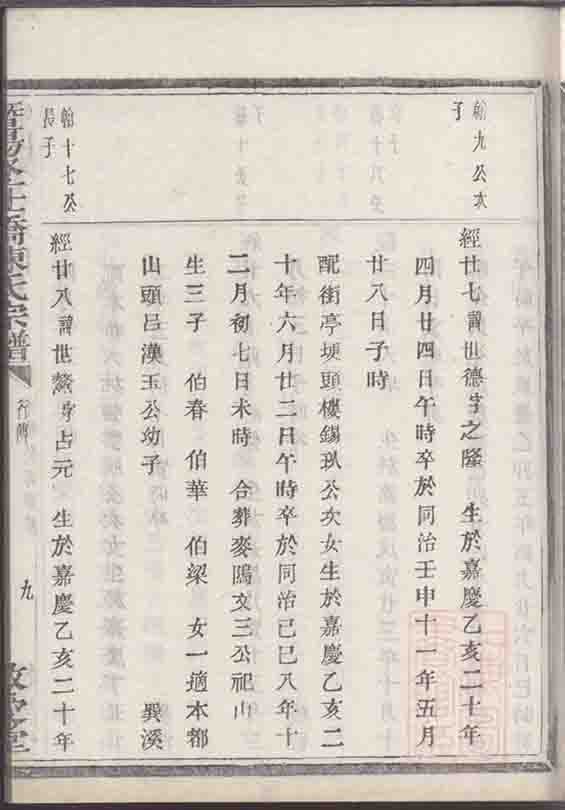 翰九公本
子
經廿七諱世德字之隆 生於嘉慶乙亥二十年
四月廿四日午時卒於同治壬申十一年五月
廿八日子時
配街亭埂頭樓錫玐公次女生於嘉慶乙亥二
十年六月廿二日午時卒於同治己巳八年十
二月初七日未時 合葬麥隖文三公祀山
生三子 伯春 伯華 伯梁 女一適本都
山頭呂漢玉公幼子 巽溪
翰十七公
長子
經廿八諱世鰲字占元 生於嘉慶乙亥二十年
橋陳氏宗譜
行傳
九